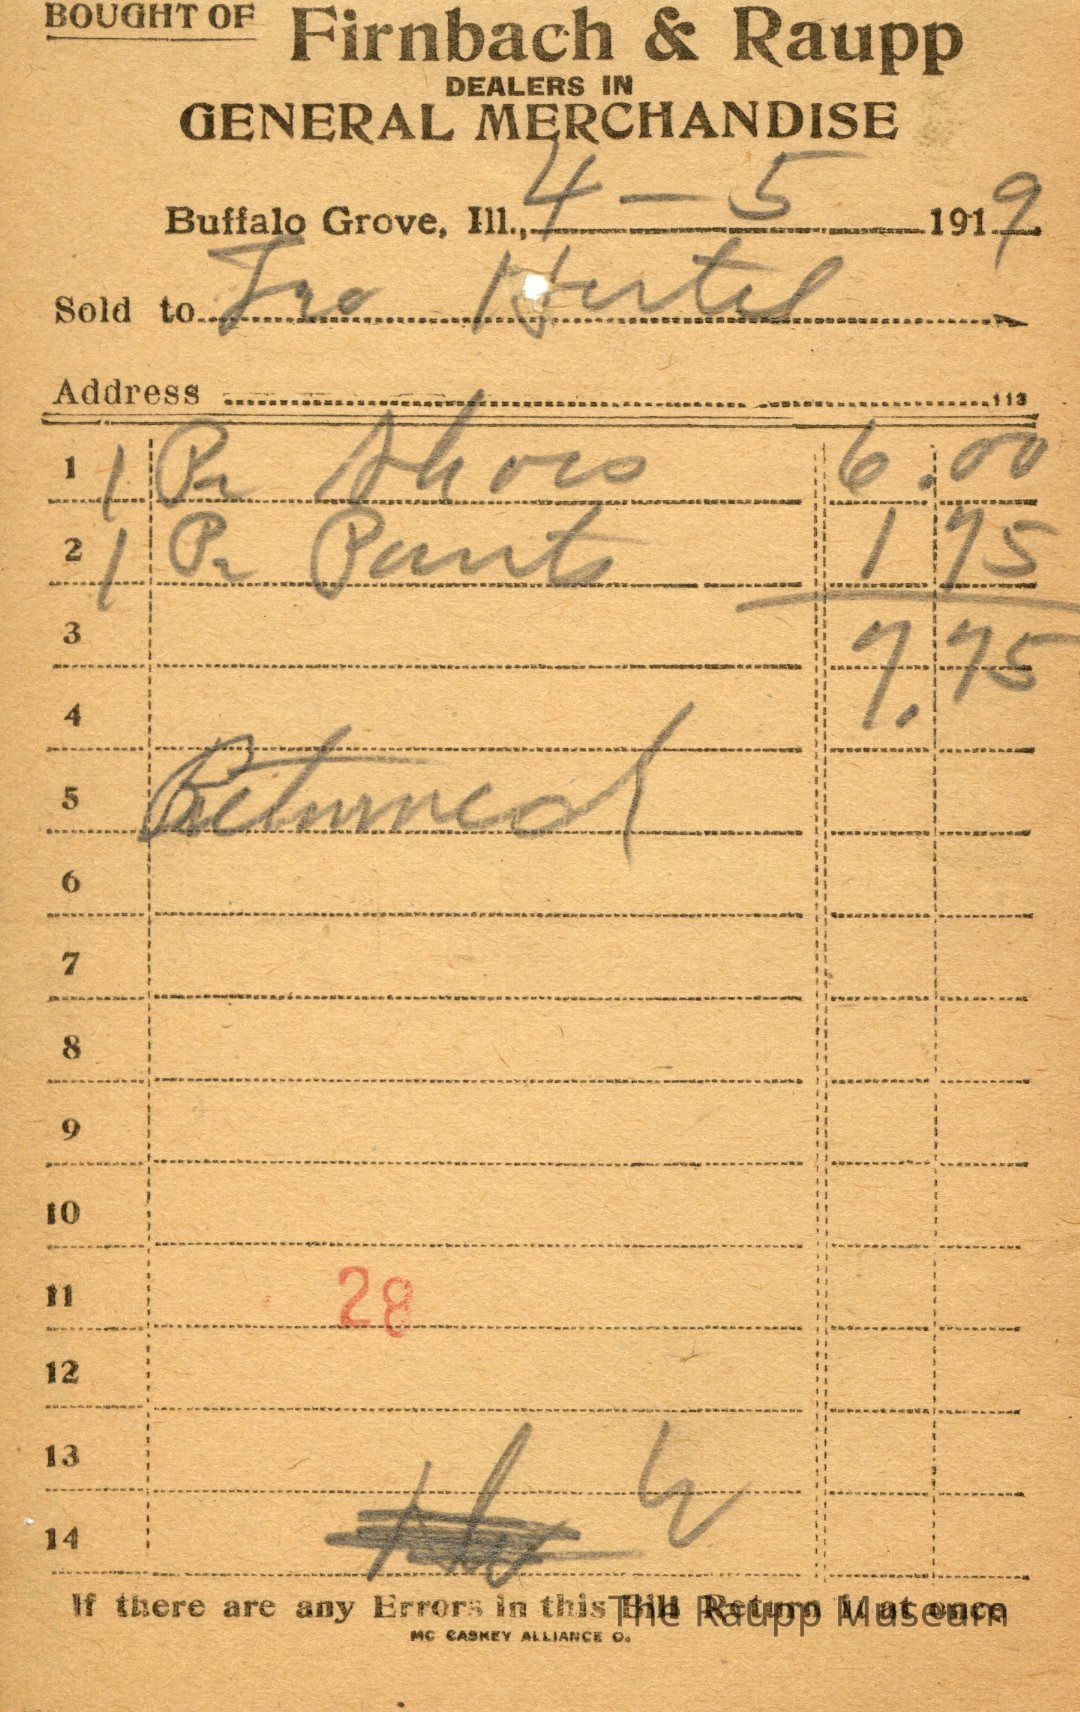 BOUGHT OF Firnbach & Raupp
DEALERS IN
GENERAL MERCHANDISE
Buffalo Grove, Ill., 4 - 5 1919
Sold to Hertel
Address
113
1 1 Pr Shoes 6.00
2 1 Pr Pants 1 75
3 7.75
4
5 Returned
6
7
8
9
10
11 28
12
13
14
If there are any Errors in this Bill Return it at once
The Raupp Museum
MC CASKEY ALLIANCE O.